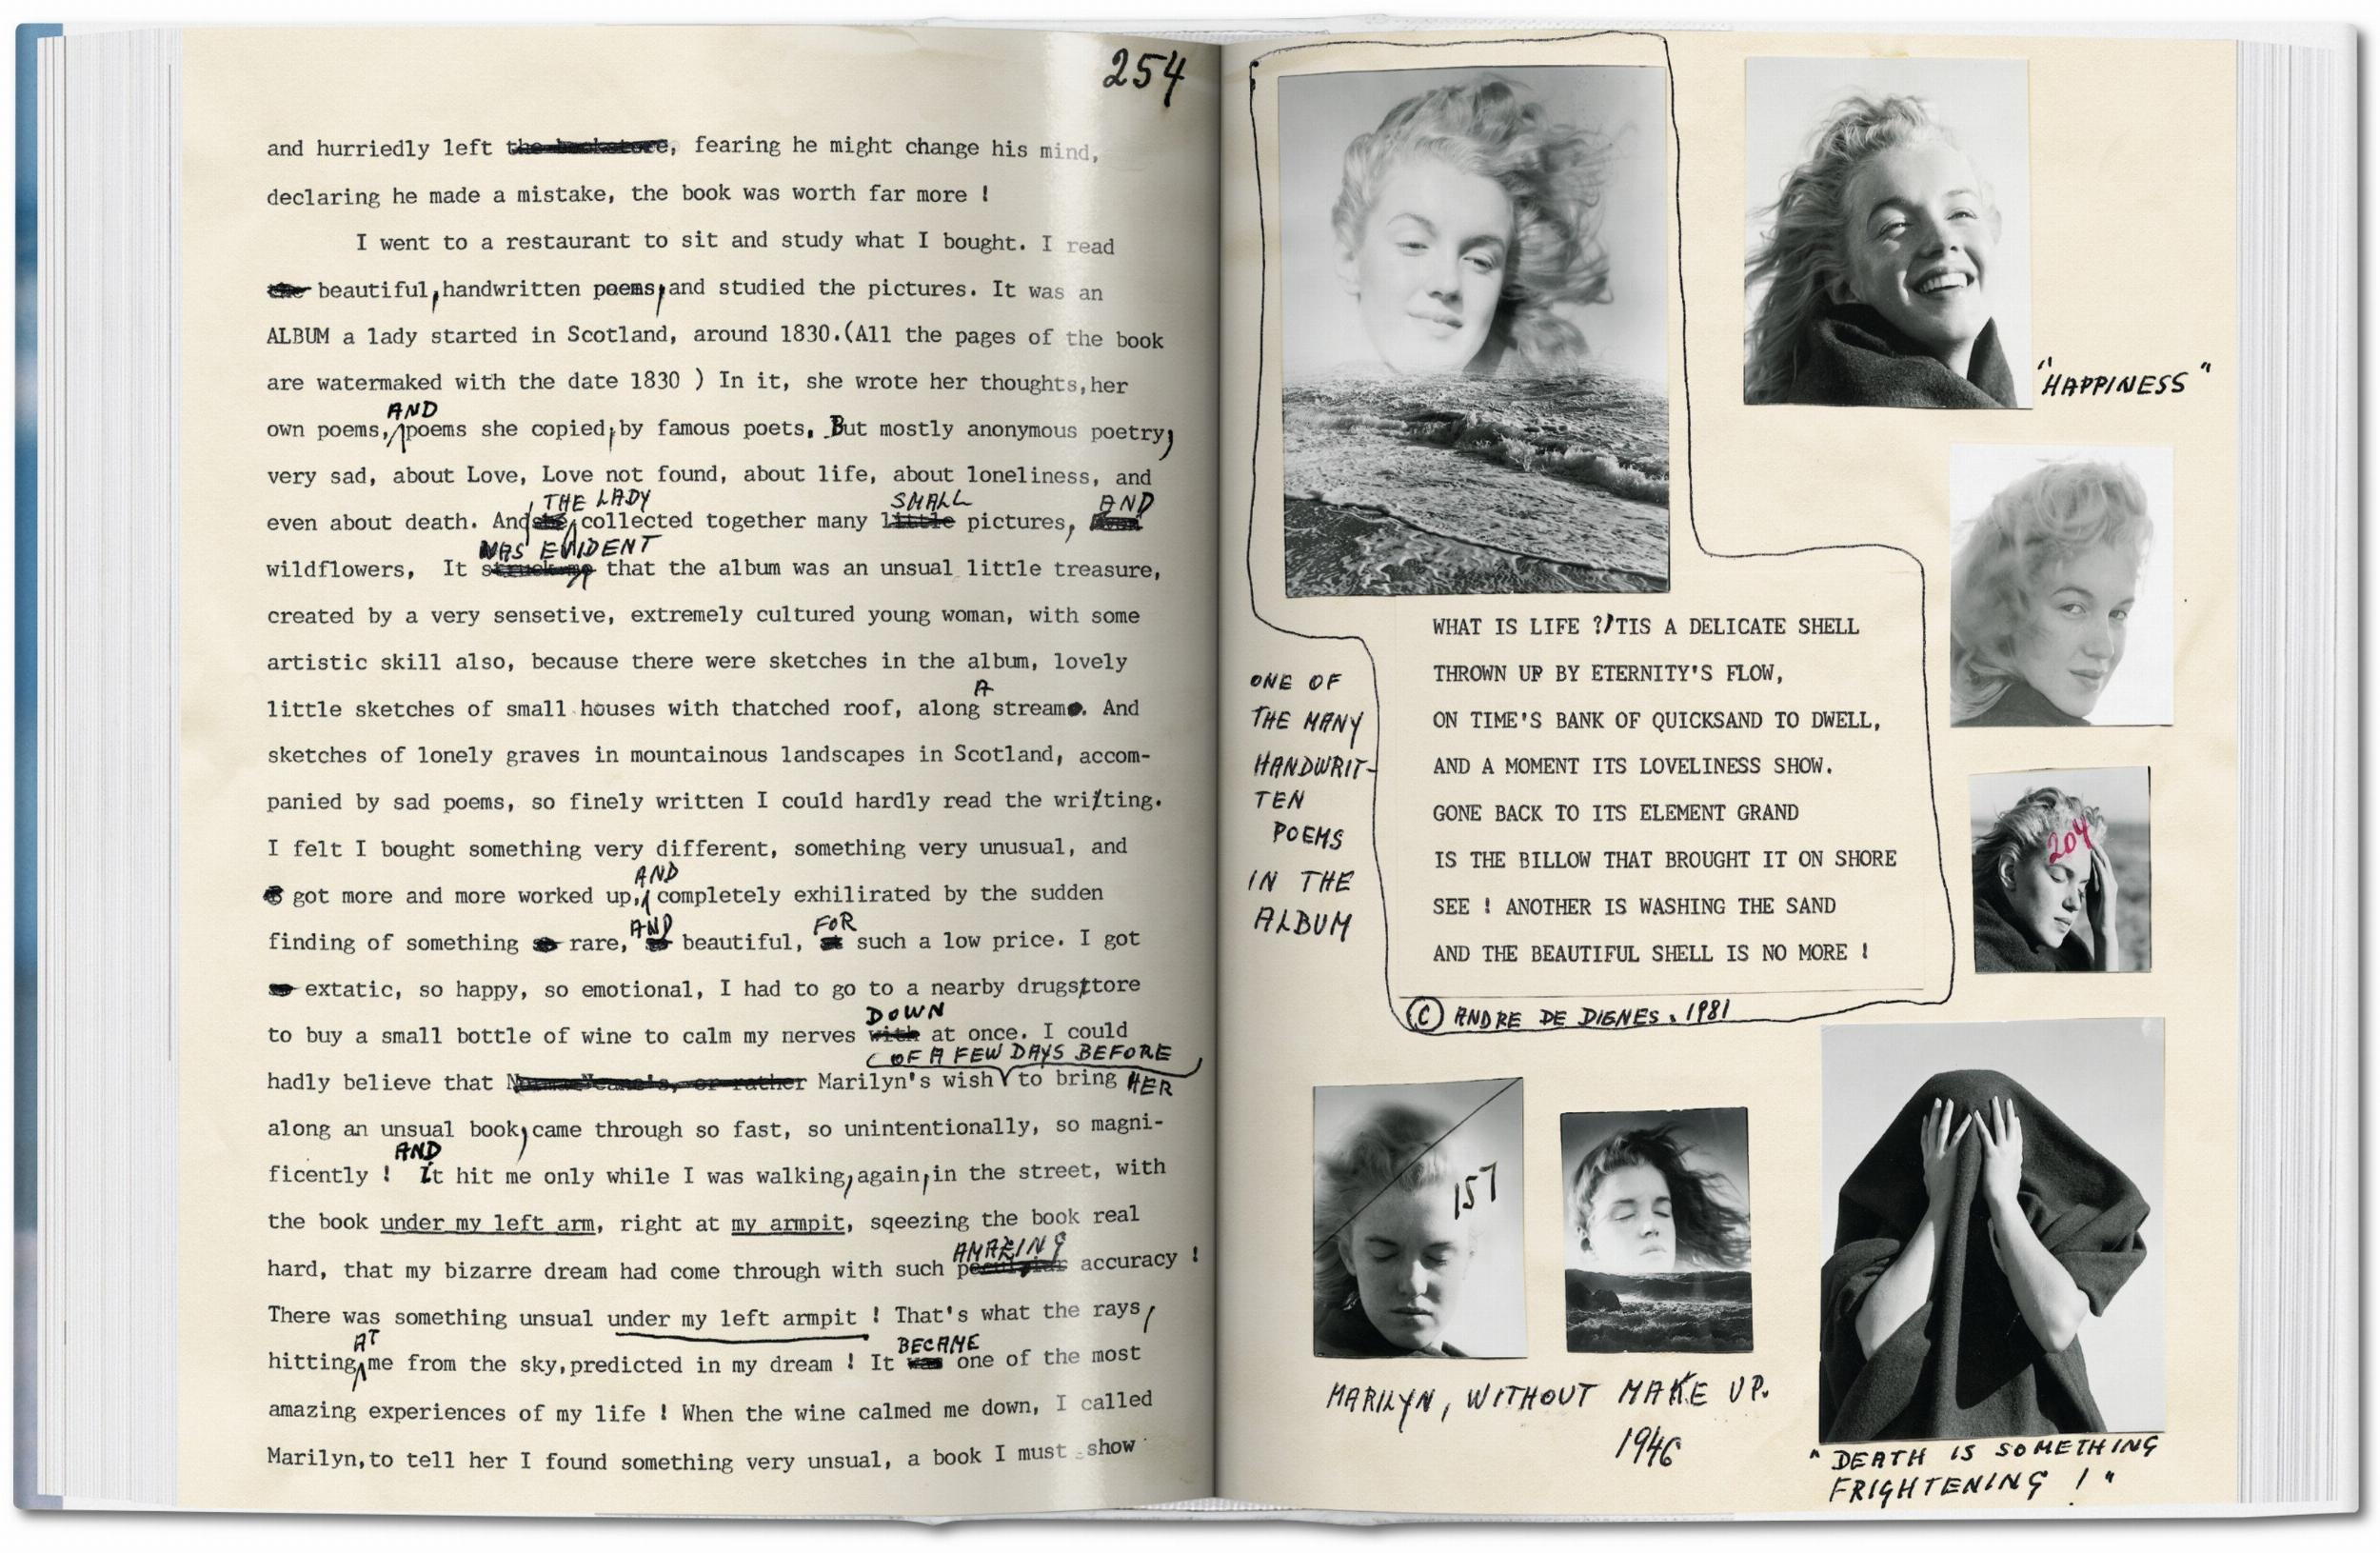 254
and hurriedly left the bookstore, fearing he might change his mind,
declaring he made a mistake, the book was worth far more !
I went to a restaurant to sit and study what I bought. I read
the beautiful, handwritten poems, and studied the pictures. It was an
ALBUM a lady started in Scotland, around 1830.(All the pages of the book
are watermaked with the date 1830 ) In it, she wrote her thoughts,her
AND
own poems, poems she copied, by famous poets. But mostly anonymous poetry,
very sad, about Love, Love not found, about life, about loneliness, and
THE LADY SMALL AND
even about death. And she collected together many little pictures,
WAS EVIDENT
wildflowers, It struck me that the album was an unsual little treasure,
created by a very sensetive, extremely cultured young woman, with some
artistic skill also, because there were sketches in the album, lovely
A
little sketches of small houses with thatched roof, along stream. And
sketches of lonely graves in mountainous landscapes in Scotland, accom-
panied by sad poems, so finely written I could hardly read the writting.
I felt I bought something very different, something very unusual, and
AND
got more and more worked up, completely exhilirated by the sudden
AND FOR
finding of something rare, beautiful, such a low price. I got
extatic, so happy, so emotional, I had to go to a nearby drugsttore
DOWN
to buy a small bottle of wine to calm my nerves with at once. I could
OF A FEW DAYS BEFORE
hadly believe that Norma Jeane's, or rather Marilyn's wish to bring HER
along an unsual book, came through so fast, so unintentionally, so magni-
AND
ficently ! It hit me only while I was walking, again, in the street, with
the book under my left arm, right at my armpit, sqeezing the book real
AMAZING
hard, that my bizarre dream had come through with such peculiar accuracy !
There was something unsual under my left armpit ! That's what the rays,
AT BECAME
hitting me from the sky,predicted in my dream ! It was one of the most
amazing experiences of my life ! When the wine calmed me down, I called
Marilyn,to tell her I found something very unsual, a book I must show
"HAPPINESS"
WHAT IS LIFE ?'TIS A DELICATE SHELL
THROWN UP BY ETERNITY'S FLOW,
ON TIME'S BANK OF QUICKSAND TO DWELL,
AND A MOMENT ITS LOVELINESS SHOW.
GONE BACK TO ITS ELEMENT GRAND
IS THE BILLOW THAT BROUGHT IT ON SHORE
SEE ! ANOTHER IS WASHING THE SAND
AND THE BEAUTIFUL SHELL IS NO MORE !
© ANDRE DE DIENES. 1981
ONE OF
THE MANY
HANDWRIT-
TEN
POEMS
IN THE
ALBUM
204
157
MARILYN, WITHOUT MAKE UP.
1946
"DEATH IS SOMETHING
FRIGHTENING !"